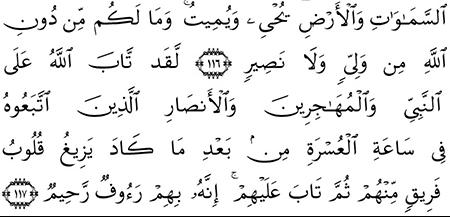 ٱلسَّمَـٰوَٰتِ وَٱلْأَرْضِ يُحْىِۦ وَيُمِيتُ ۚ وَمَا لَكُم مِّن دُونِ
ٱللَّهِ مِن وَلِىٍّ وَلَا نَصِيرٍ ﴿١١٦﴾ لَّقَد تَّابَ ٱللَّهُ عَلَى
ٱلنَّبِىِّ وَٱلْمُهَـٰجِرِينَ وَٱلْأَنصَارِ ٱلَّذِينَ ٱتَّبَعُوهُ
فِى سَاعَةِ ٱلْعُسْرَةِ مِنۢ بَعْدِ مَا كَادَ يَزِيغُ قُلُوبُ
فَرِيقٍ مِّنْهُمْ ثُمَّ تَابَ عَلَيْهِمْ ۚ إِنَّهُۥ بِهِمْ رَءُوفٌ رَّحِيمٌ ﴿١١٧﴾